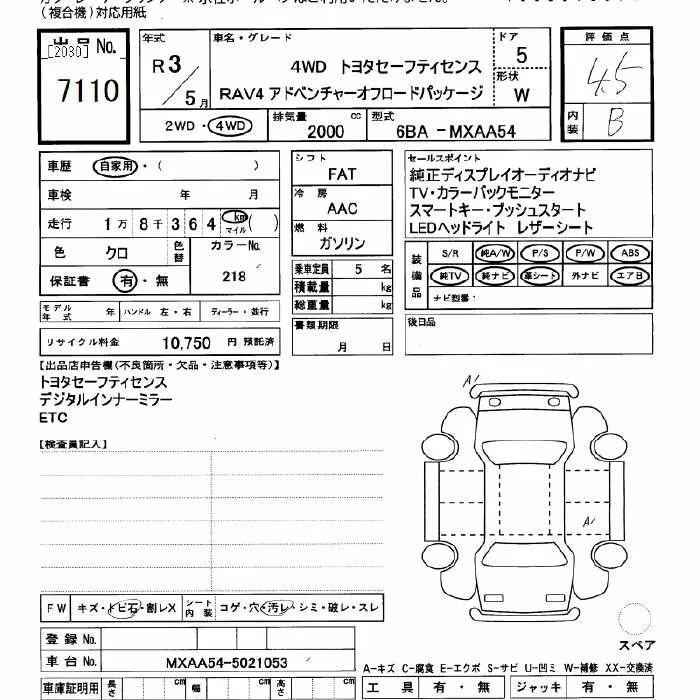 (複合機)対応用紙
出品No.
[2030]
7110
年式
R3/5月
車名・グレード
4WD トヨタセーフティセンス
RAV4 アドベンチャーオフロードパッケージ
ドア
5
形状
W
評価点
4.5
内装
B
2WD・4WD
排気量
2000 cc
型式
6BA -MXAA54
車歴 自家用・( )
車検 年 月
走行 1万 8千 3 6 4 km マイル ( )
色 クロ
色替
カラーNo.
218
保証書 有・無
モデル年式 年
ハンドル 左・右
ディーラー・並行
リサイクル料金 10,750 円 預託済
シフト
FAT
冷房
AAC
燃料
ガソリン
乗車定員 5 名
積載量 kg
総重量 kg
書類期限
月 日
セールスポイント
純正ディスプレイオーディオナビ
TV・カラーバックモニター
スマートキー・プッシュスタート
LEDヘッドライト レザーシート
装備品
S/R 純A/W P/S P/W ABS
純TV 純ナビ 革シート 外ナビ エアB
ナビ型番:
後日品
【出品店申告欄(不良箇所・欠品・注意事項等)】
トヨタセーフティセンス
デジタルインナーミラー
ETC
【検査員記入】
A1
A1
FW キズ・トビ石・割レX
シート内装 コゲ・穴・汚レ・シミ・破レ・スレ
スペア
登録No.
車台No. MXAA54-5021053
A-キズ C-腐食 E-エクボ S-サビ U-凹ミ W-補修 XX-交換済
車庫証明用 長さ cm 幅 cm 高さ cm
工具 有・無 ジャッキ 有・無